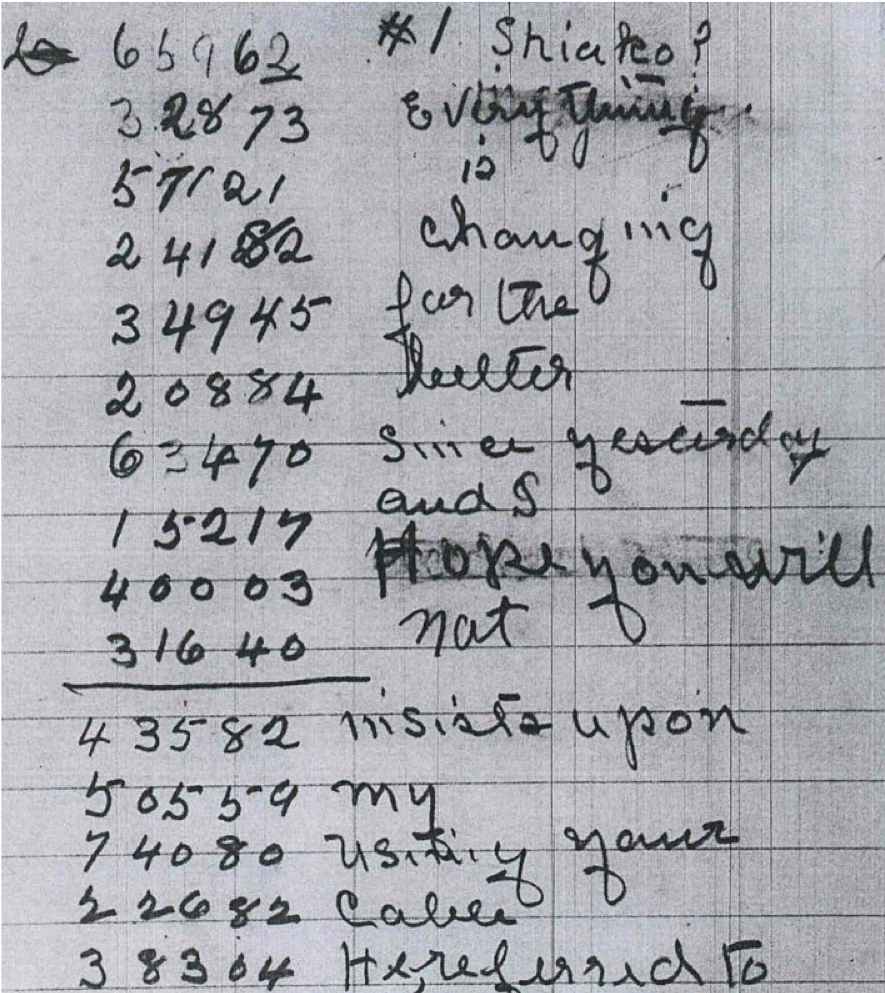 65962 #1 Shiako?
32873 Everything
57121 is
24182 changing
34945 for the
20884 better
63470 Since yesterday
15217 and I
40003 Hope you will
31640 not
43582 insists upon
50559 my
74080 using your
22682 Cable
38304 He, referred to